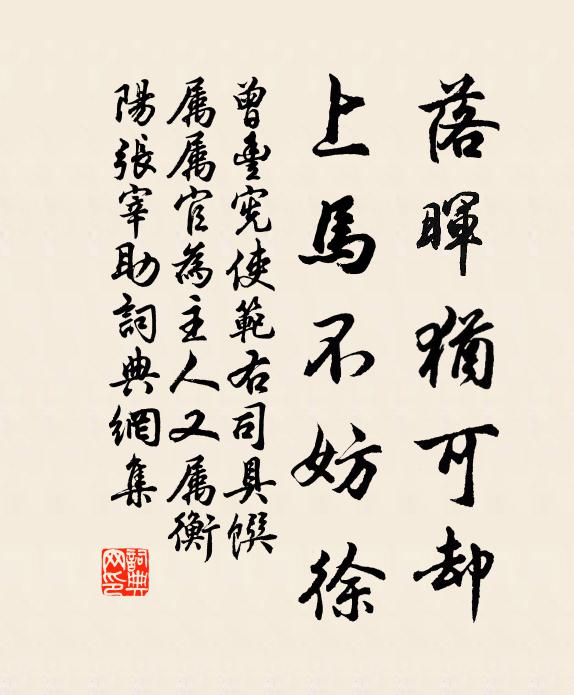 落暉猶可却
上馬不妨徐
曾豊宪使範右司具饌
属属官為主人又属衡
陽張宰助詞典網集
詞典
网印